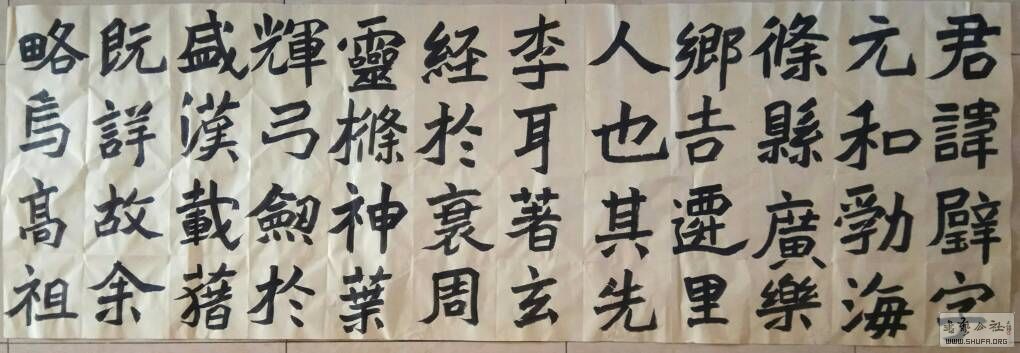 君諱璧字
元和勃海
條縣廣樂
鄉吉遷里
人也其先
李耳著玄
経於衰周
靈樤神葉
輝弓劔於
盛漢載藉
既詳故余
略焉髙祖
WWW.SHUFA.ORG